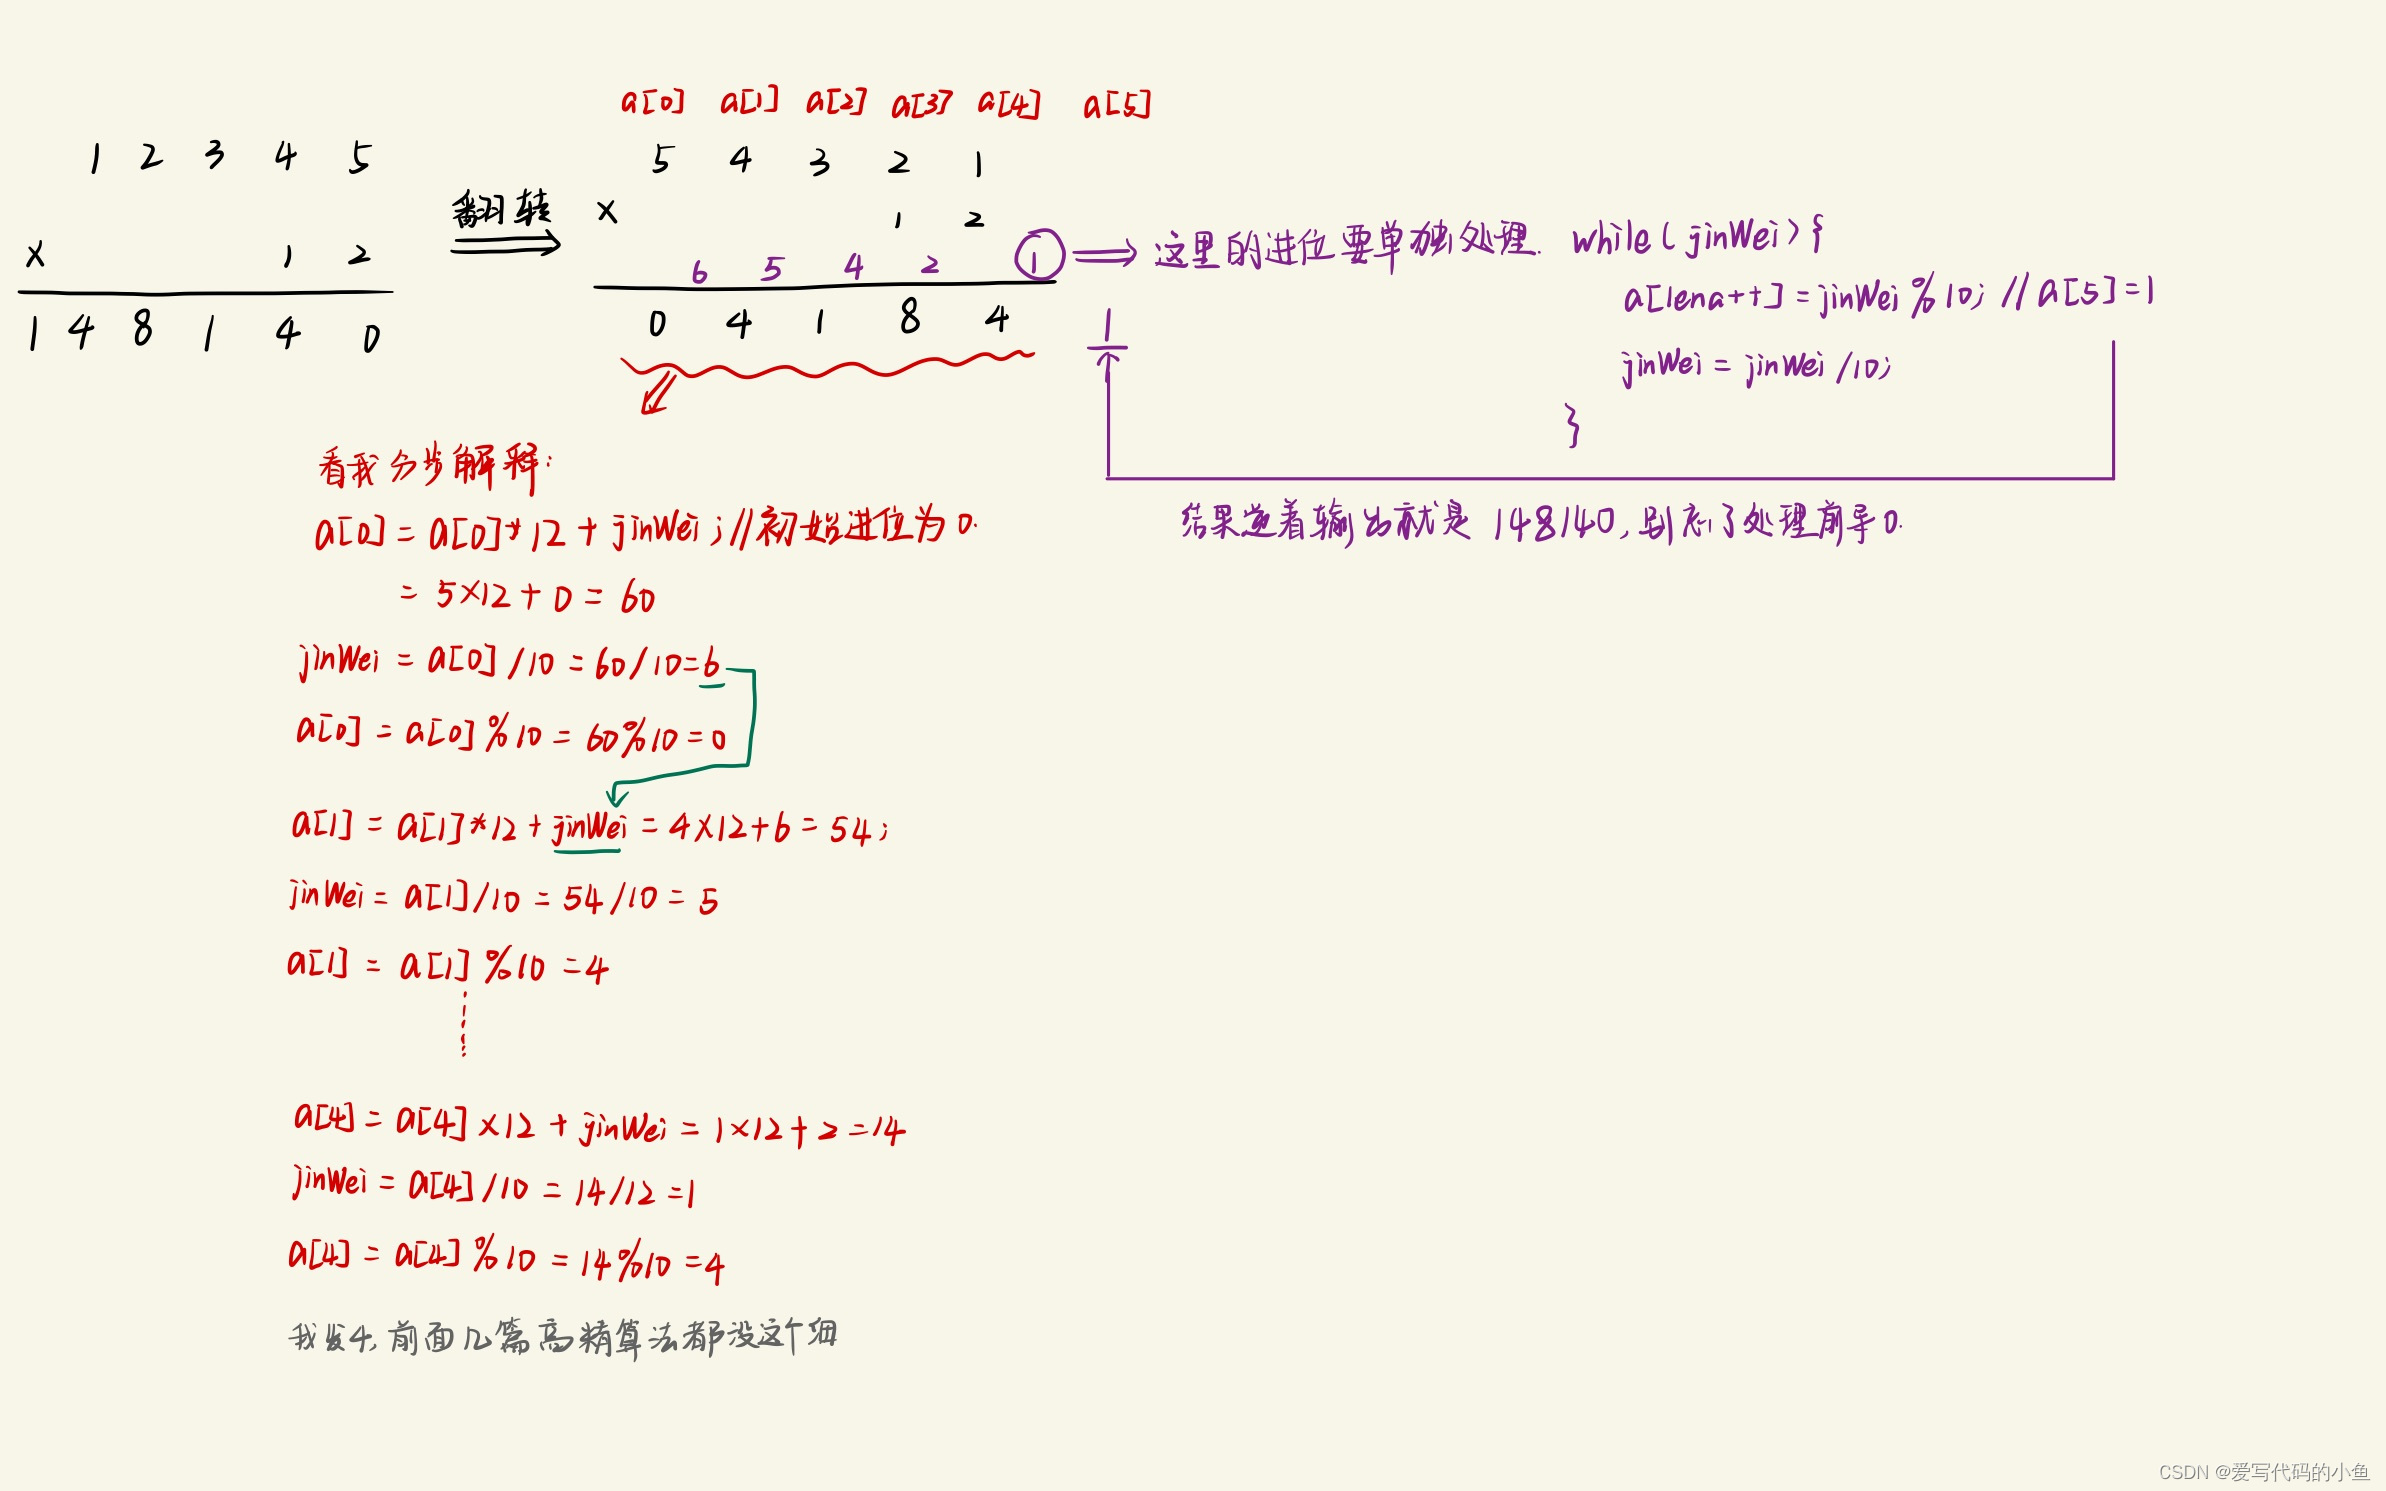 a[0] a[1] a[2] a[3] a[4] a[5]
1 2 3 4 5
× 1 2
1 4 8 1 4 0
翻转
5 4 3 2 1
× 1 2
6 5 4 2 1
0 4 1 8 4 1
这里的进位要单独处理. while(jinWei){
a[lena++] = jinWei%10; //a[5]=1
jinWei = jinWei/10;
}
结果逆着输出就是 148140,别忘了处理前导0.
看我分步解释:
a[0] = a[0]*12 + jinWei; //初始进位为0.
= 5×12 + 0 = 60
jinWei = a[0]/10 = 60/10=6
a[0] = a[0]%10 = 60%10 = 0
a[1] = a[1]*12 + jinWei = 4×12+6 = 54;
jinWei = a[1]/10 = 54/10 = 5
a[1] = a[1]%10 = 4
a[4] = a[4]×12 + jinWei = 1×12+2 = 14
jinWei = a[4]/10 = 14/12 = 1
a[4] = a[4]%10 = 14%10 = 4
我发4,前面几篇高精算法都没这个细
CSDN @爱写代码的小鱼